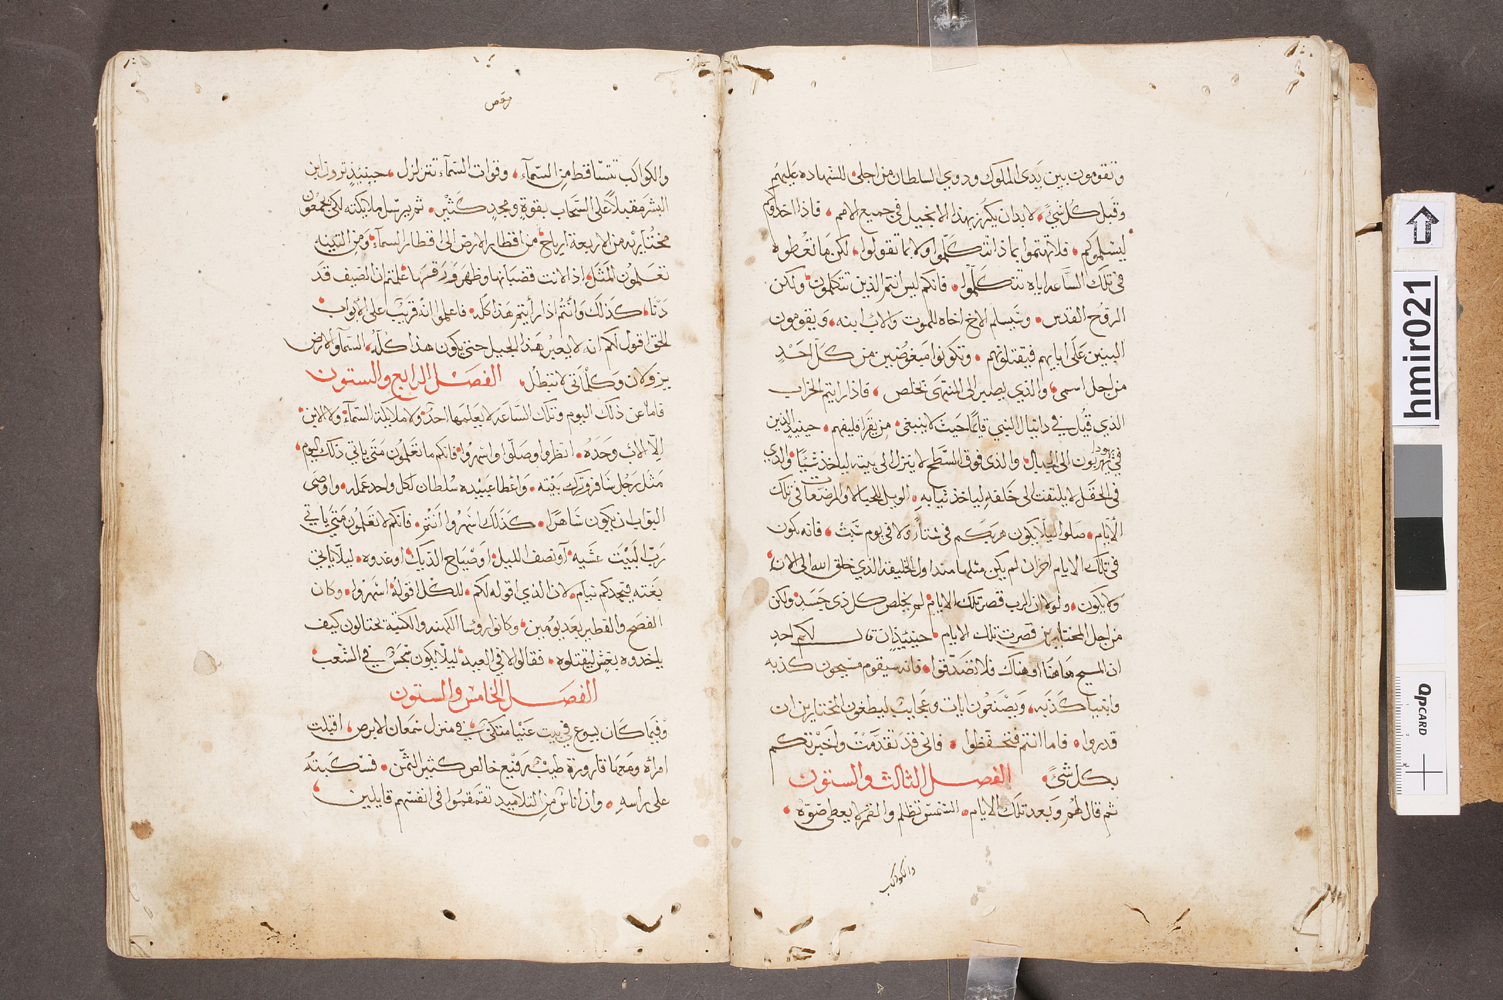 وتقومون بين يدي الملوك وذوي السلطان من اجلي للشهاده عليهم
وقبل كل شيً، لابد ان يكرز بهذا الانجيل في جميع الامم، فاذا اخذوكم
ليسلموكم، فلا تهتموا بماذا تتكلموا ولا بما تقولوا، لكن ما تعطوه
في تلك الساعه اياه تتكلموا، فانكم ليس انتم الذين تتكلمون، ولكن
الروح القدس، وسيسلم الاخ اخاه للموت والاب ابنه، ويقومون
البنين على ابايهم فيقتلونهم، وتكونوا مبغوضين من كل احد
من اجل اسمي، والذي يصبر الى المنتهى يخلص، فاذا رايتم الخراب
الذي قيل في دانيال النبي قايمًا حيث لا ينبغي، من يقرا فليفهم، حينيذ الذين
في يهودا يهربون الى الجبال، والذي فوق السطح لا ينزل الى بيته لياخذ شيًا، والذي
في الحقل لا يلتفت الى خلفه لياخذ ثيابه، الويل للحبالا والمرضعات في تلك
الايام، صلوا ليلا يكون هربكم في شتاء ولا في يوم سبت، فانه يكون
في تلك الايام احزان لم يكن مثلها منذ اول الخليقه الذي خلق الله الى الان
ولا يكون، ولولا ان الرب قصر تلك الايام لم يخلص كل ذي جسد، ولكن
من اجل المختارين قصرت تلك الايام، حينيذ ان قال لكم احد
ان المسيح هاهنا او هناك فلا تصدقوا، فانه سيقوم مسيحون كذبه
وانبيا كذبه، ويصنعون ايات وعجايب ليطغون المختارين ان
قدروا، فاما انتم فتحفظوا، فاني قد تقدمت واخبرتكم
بكل شيً، الفصل الثالث والستون
ثم قال لهم وبعد تلك الايام، الشمس تظلم والقمر لا يعطي ضوه،
والكواكب
والكواكب تتساقط من السمآء، وقوات السمآء تتزلزل، حينيذ ترون ابن
البشر مقبلاً على السحاب بقوة ومجد كثير، ثم يرسل ملايكته لكي يجمعون
مختاريه من الاربعة ارياح، من اقطار الارض الى اقطار السمآء، ومن التينه
تعلمون المثل، اذا لانت قضبانها وظهر ورقها، علمتم ان الصيف قد
دنا، كذلك وانتم اذا رايتم هذا كله، فاعلموا انه قريب على الابواب
الحق اقول لكم انه لا يعبر هذا الجيل حتى يكون هذا كله، السمآ والارض
يزولان وكلامي لا تبطل، الفصل الرابع والستون
فاما عن ذلك اليوم وتلك الساعه لا يعلمها احد، ولا ملايكة السمآء، ولا الابن
الا الاب وحده، انظروا وصلوا واسهروا، فانكم ما تعلمون متى ياتي ذلك اليوم،
مثل رجل سافر وترك بيته، واعطا عبيده سلطان لكل واحد عمله، واوصى
البواب ان يكون ساهرًا، كذلك اسهروا انتم، فانكم لا تعلمون متى ياتي
رب البيت عشيه، او نصف الليل، او صياح الديك، او غدوه، ليلا ياتي
بغته فيجدكم نيام، لان الذي اقوله لكم، للكل اقوله، اسهروا، وكان
الفصح والفطير بعد يومين، وكانوا روسا الكهنه والكتبه يحتالون كيف
ياخذوه بغش ليقتلوه، فقالوا لا في العيد، ليلا يكون شجس في الشعب،
الفصل الخامس والستون
وفيما كان يسوع في بيت عنيا متكئ في منزل سمعان الابرص، اقبلت
امراة ومعها قارورة طيب رفيع خالص كثير الثمن، فسكبته
على راسه، وان اناس من التلاميد تقمقموا في انفسهم قايلين،
hmir021
QPCARD